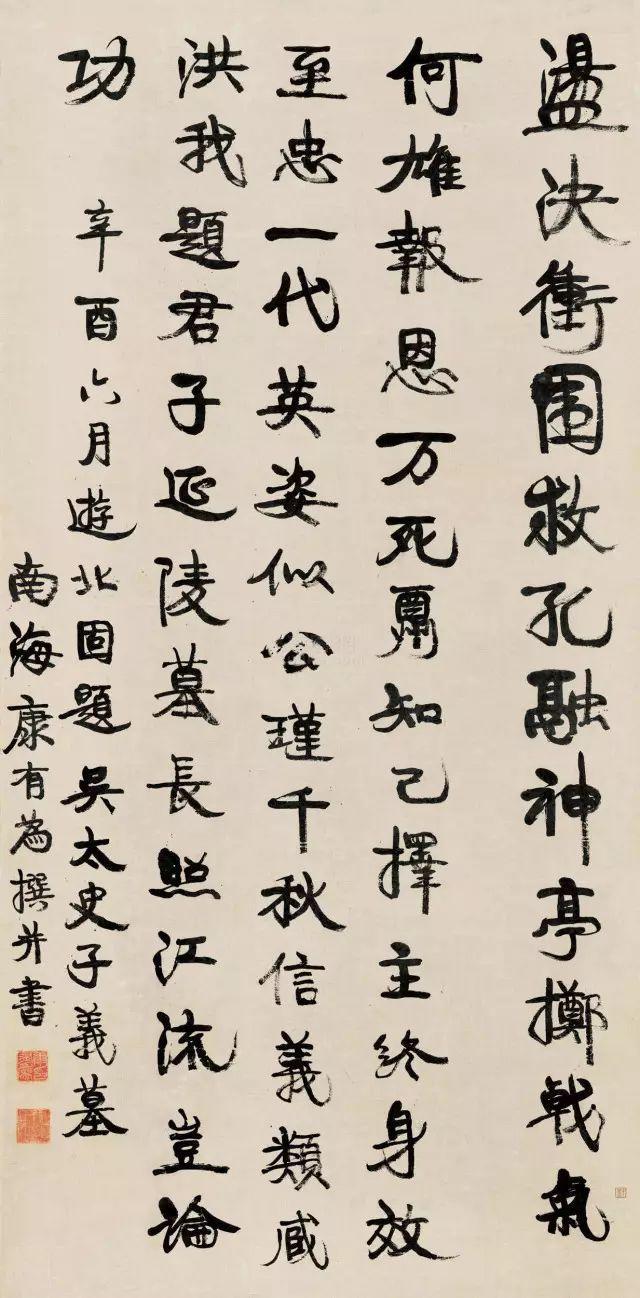 盪决衝圍救孔融神亭擲戟氣
何雄報恩万死知己擇主終身效
至忠一代英姿似公瑾千秋信義類臧
洪我題君子延陵墓長照江流豈論
功
辛酉六月遊北固題吳太史子義墓
南海康有為撰并書